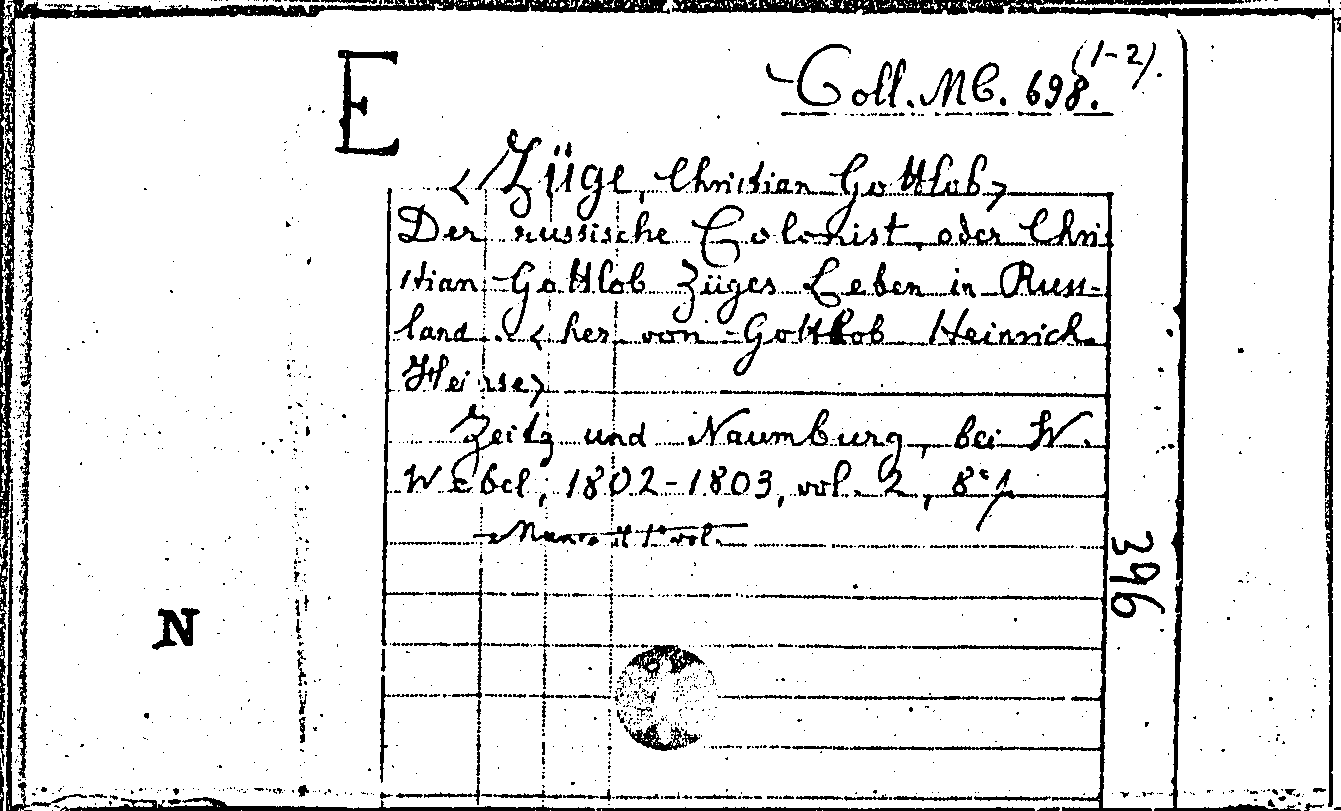 E
Coll. MC. 698. (1-2).
<Züge, Christian Gottlob>
Der russische Colonist, oder Chri
stian Gottlob Züges Leben in Russ-
land. < her. von Gottlob Heinrich
Heinse>
Zeitz und Naumburg, bei W.
Webel, 1802-1803, vol. 2, 8°/.
Manca il 1° vol.
396
N